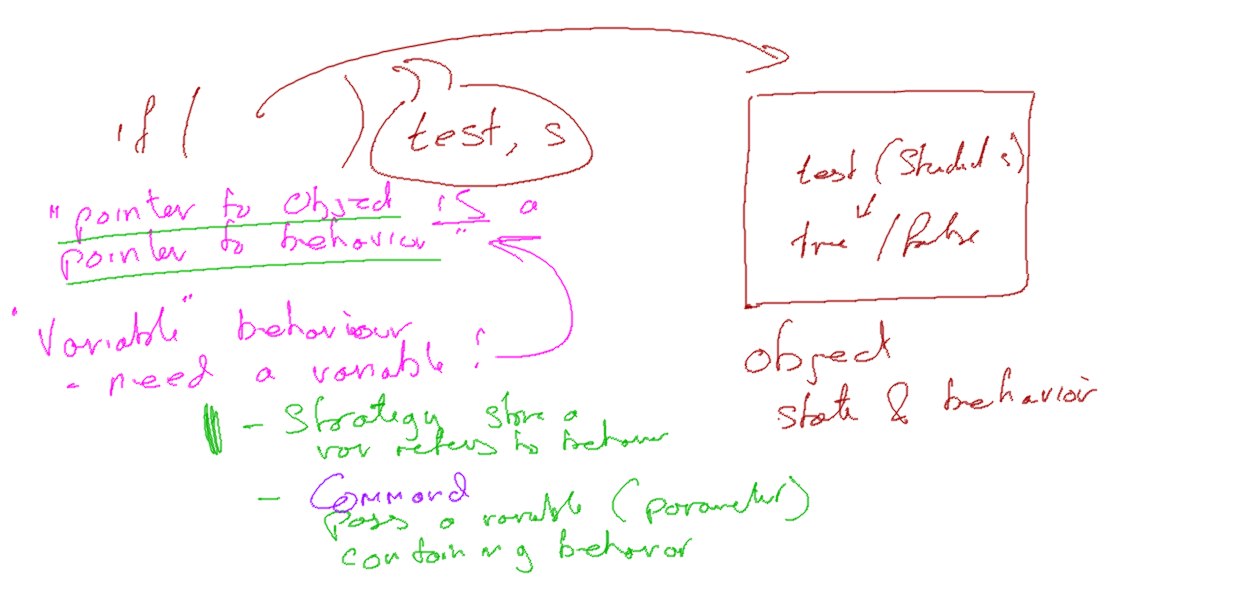 if ( ) test, s
"pointer to object is a
pointer to behavior"
"Variable" behaviour
- need a variable!
- Strategy store a
var refers to behavior
- Command
pass a variable (parameter)
containing behavior
test (Student s)
true / false
object
state & behavior